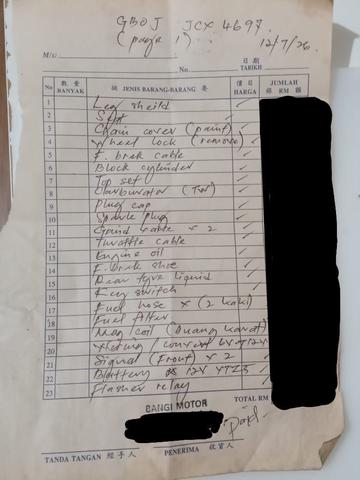 GBOJ JCX 4697
(page 1)
12/7/26
M/s:
日期
No. TARIKH
數量 摘 JENIS BARANG-BARANG 要 價目 JUMLAH
No BANYAK HARGA 銀 RM 額
1 Leg sheild
2 Seat
3 Chain cover (paint)
4 Wheel lock (remove)
5 F. brek cable
6 Block cylinder
7 Top set
8 Carburator
9 Plug cap
10 Spark plug
11 cable x 2
12 Throttle cable
13 Engine oil
14 F. brek shoe
15 Rear tyre liquid
16 Key switch
17 Fuel hose x (2 kaki)
18 Fuel filter
19 Mag/coil (Buang karat)
20 Wiring / convert 6V-12V
21 Signal (front) x 2
22 Battery 12V YTZ5
23 Flasher relay
BANGI MOTOR TOTAL RM
TANDA TANGAN 經手人 PENERIMA 收貨人